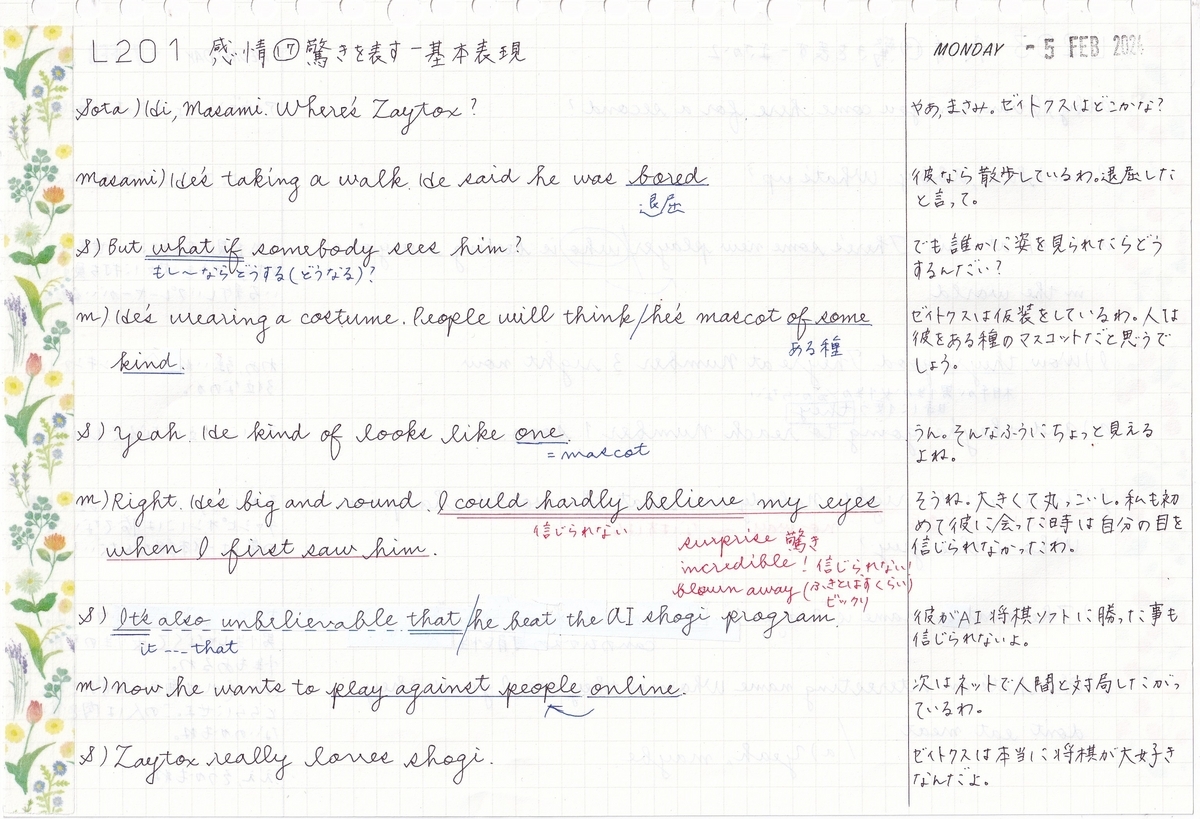 L201 感情⑰驚きを表す-基本表現
MONDAY -5 FEB 2024
Sota) Hi, Masami. Where's Zaytox?
やあ, まさみ。ゼイトクスはどこかな?
Masami) He's taking a walk. He said he was bored
退屈
彼なら散歩しているわ。退屈した
と言って。
S) But what if somebody sees him?
もし〜ならどうする(どうなる)?
でも誰かに姿を見られたらどう
するんだい?
m) He's wearing a costume. People will think/he's mascot of some
ある種
kind.
ゼイトクスは仮装をしているわ。人は
彼をある種のマスコットだと思うで
しょう。
S) Yeah. He kind of looks like one.
=mascot
うん。そんなふうにちょっと見える
よね。
m) Right. He's big and round. I could hardly believe my eyes
信じられない
when I first saw him.
surprise 驚き
incredible! 信じられない!
blown away (ふきとばすくらい)
ビックリ
そうね。大きくて丸っこいし。私も初
めて彼に会った時は自分の目を
信じられなかったわ。
S) It's also unbelievable that/he beat the AI shogi program.
it --- that
彼がAI将棋ソフトに勝った事も
信じられないよ。
m) Now he wants to play against people online.
次はネットで人間と対局したがっ
ているわ。
S) Zaytox really loves shogi.
ゼイトクスは本当に将棋が大好き
なんだよ。